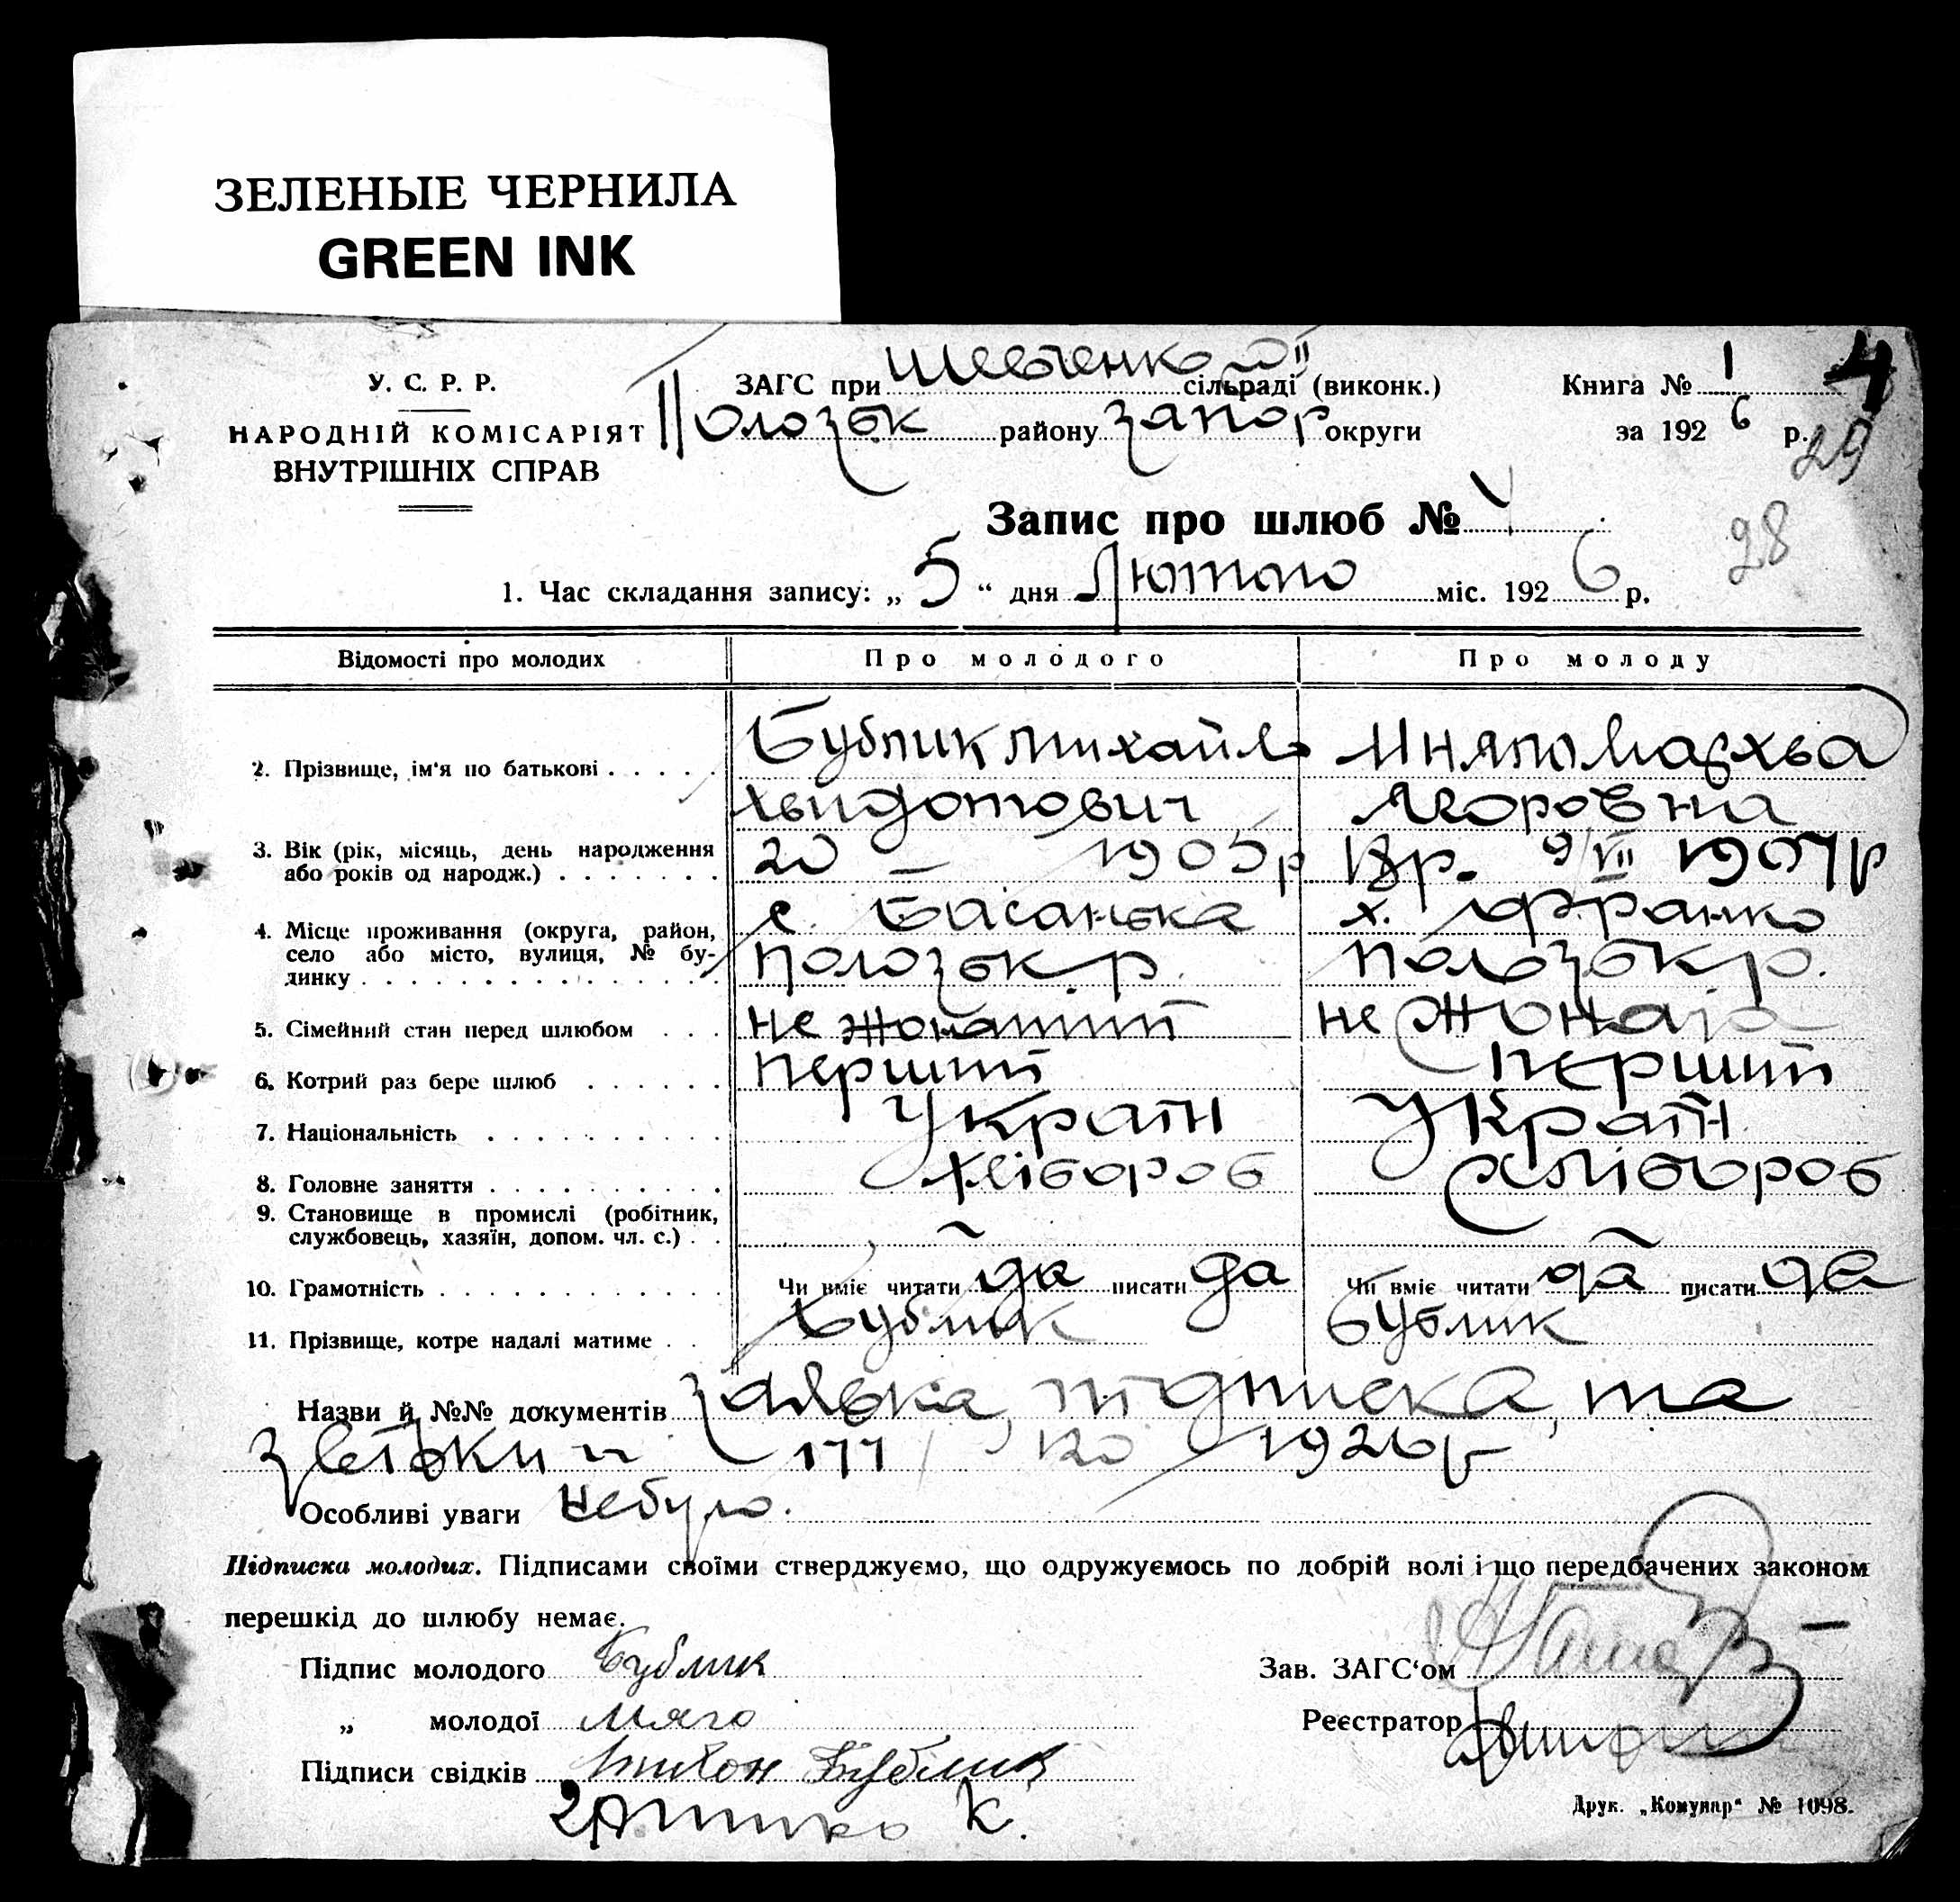 ЗЕЛЕНЫЕ ЧЕРНИЛА
GREEN INK
У. С. Р. Р.
НАРОДНІЙ КОМІСАРІЯТ
ВНУТРІШНІХ СПРАВ
ЗАГС при Шевченкой сільраді (виконк.)
Полозьк району Запор округи
Книга № 1
4
за 1926 р.
29
28
Запис про шлюб №
1. Час складання запису: „ 5 “ дня Лютого міс. 1926 р.
Відомості про молодих Про молодого Про молоду
2. Прізвище, ім'я по батькові Бублик Михайло
Хвидотович Мняго Мархва
Якоровна
3. Вік (рік, місяць, день народження
або років од народж.) 20 – 1905 р 18 р. 9/VII 1907 р
4. Місце проживання (округа, район,
село або місто, вулиця, № бу-
динку с. Басанька
Полозьк р. х. Франко
Полозьк р.
5. Сімейний стан перед шлюбом не жонатий не жоната
6. Котрий раз бере шлюб перший перший
7. Національність Україн Україн
8. Головне заняття Хлібороб Хлібороб
9. Становище в промислі (робітник,
службовець, хазяїн, допом. чл. с.)
10. Грамотність Чи вміє читати да писати да Чи вміє читати да писати да
11. Прізвище, котре надалі матиме Бублик Бублик
Назви й №№ документів заявка, підписка, та
звістки 177/ 1926 р
Особливі уваги небуло.
Підписка молодих. Підписами своїми стверджуємо, що одружуємось по добрій волі і що передбачених законом
перешкід до шлюбу немає.
Підпис молодого Бублик
Зав. ЗАГС'ом
„ молодої Мяго
Реєстратор
Підписи свідків Бублик
К.
Друк. „Комунар“ № 1098.